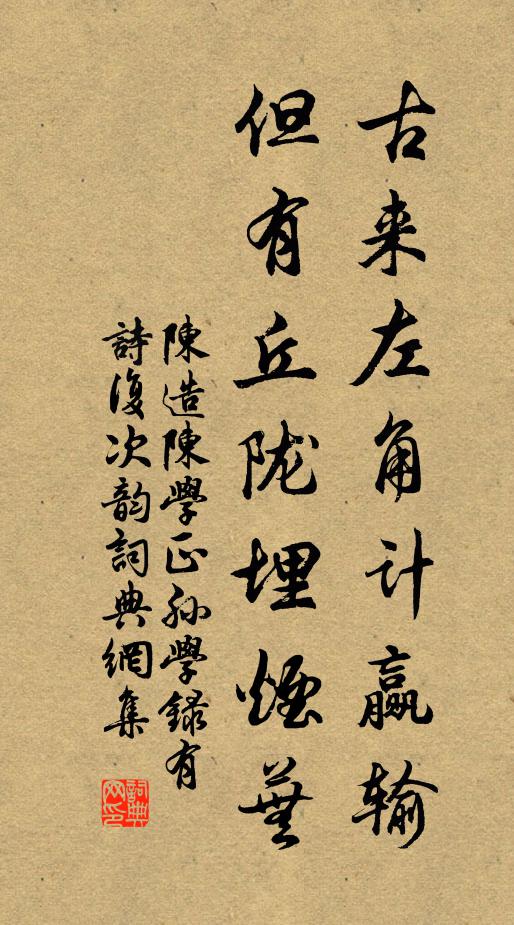 古来左角计赢输
但有丘陇埋煙蕪
陳造陳學正孙學録有
詩復次韵詞典網集
詞典网印